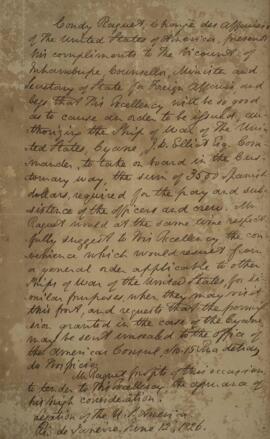 Condy Raguet, Chargé des Affaires
of the United States of America, presents
his compliments to the Viscount of
Inhambupe Counsellor, Minister and
Secretary of State for Foreign Affairs, and
begs that His Excellency will be so good
as to cause an order to be issued, au-
thorizing the Ship of War of the Uni-
ted States, Cyane, J. D. Elliott Esq. Com-
mander, to take on board in the cus-
tomary way, the sum of 3500 Spanish
dollars, required for the pay and sub-
sistence of the officers and crew. Mr.
Raguet would at the same time respect-
fully suggest to His Excellency the con-
venience which would result from
a general order applicable to other
Ships of War of the United States, for si-
milar purposes, when they may visit
this port, and requests that the permis-
sion granted in the case of the Cyane
may be sent unsealed to the office of
the American Consul, No. 15 Rua detraz
do Hospicio.
Mr. Raguet profits of this occasion
to tender to His Excellency the assurance of
his high consideration.
Legation of the U. S. America
Rio de Janeiro, June 12, 1826.